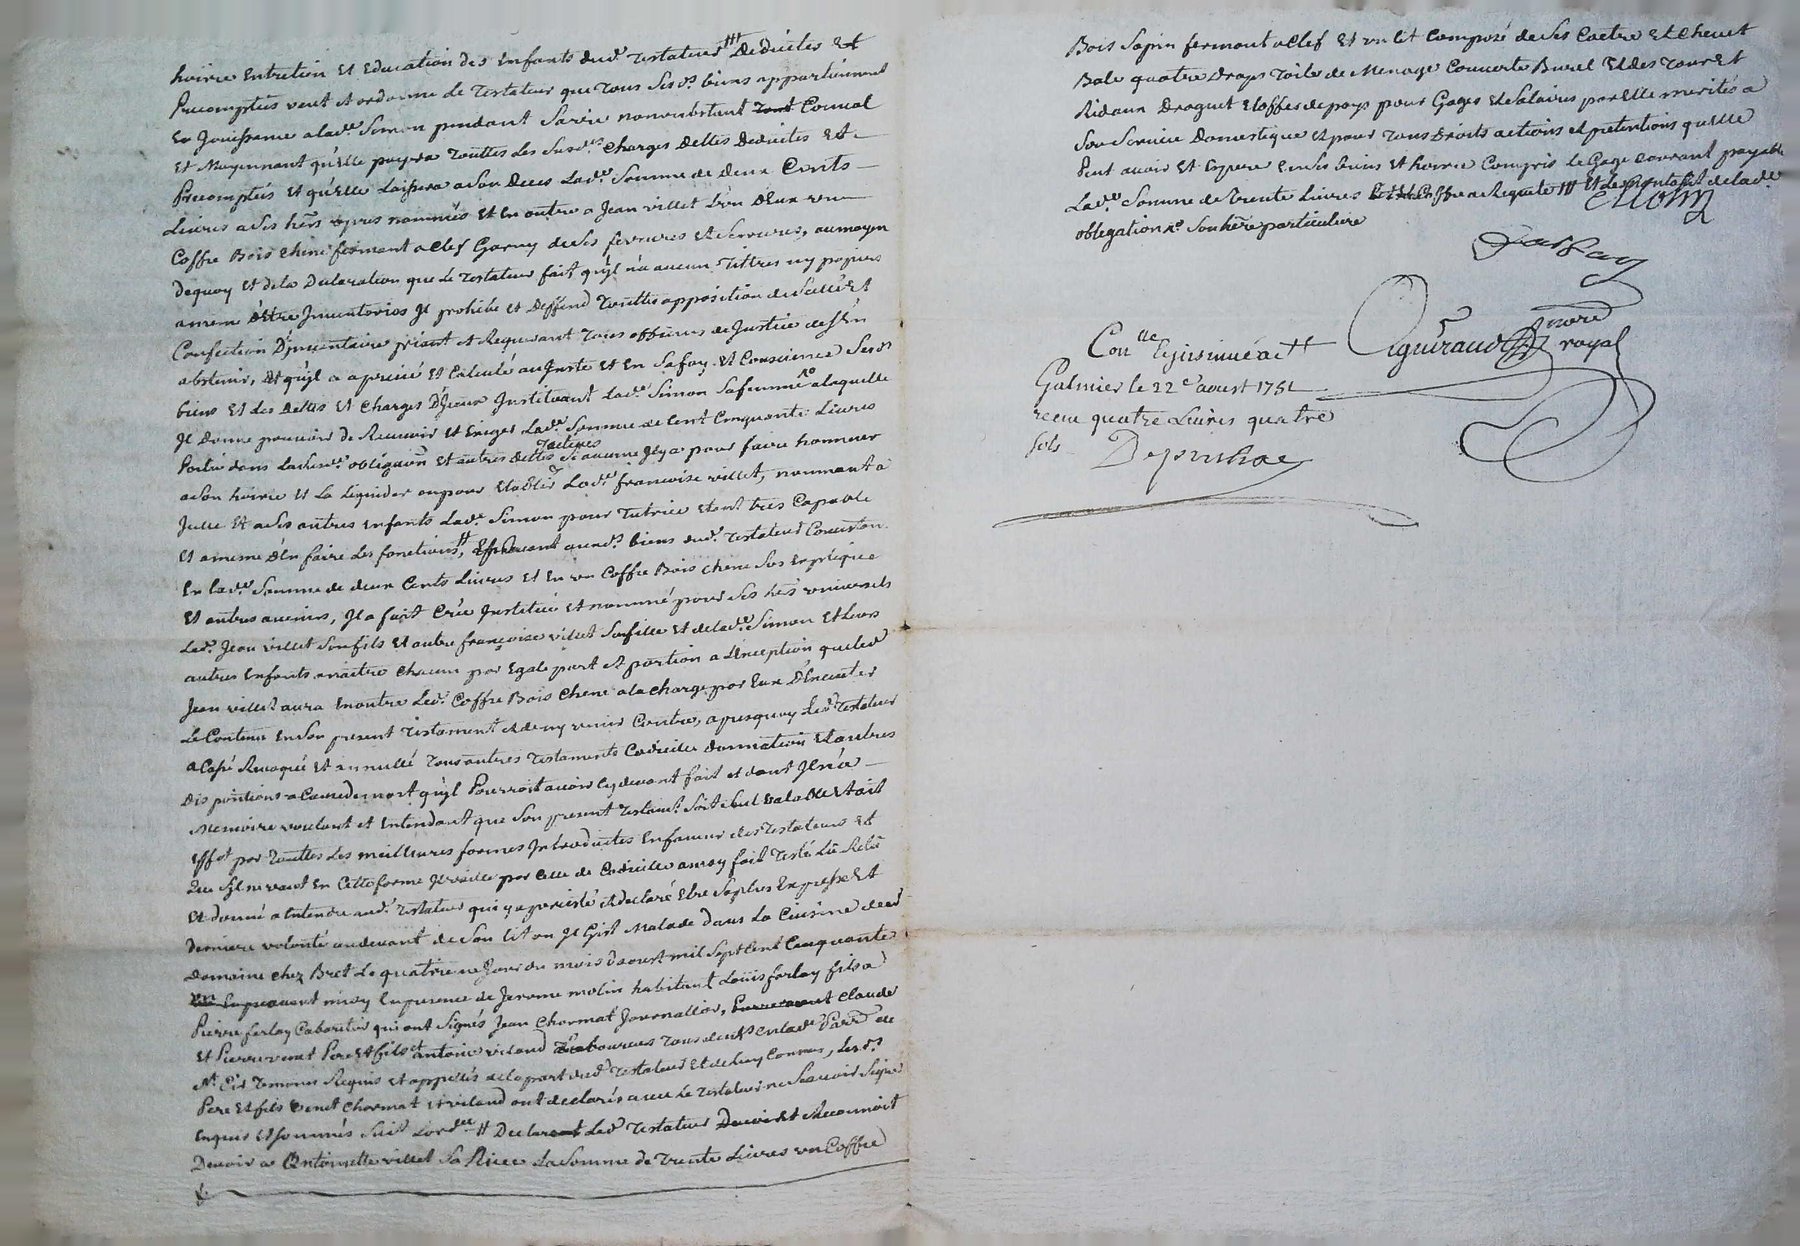 hoirie Entretien Et Education des Enfants dud. Testateur ⫲ Deduites Et
Precomptées veut et ordonne Le Testateur que Tous Ses ds. biens appartiennent
En Jouissance a lade. Simon pendant Sa vie nonobstant Tout Convol
Et Moyennant qu'Elle payera Touttes Les Susd.es Charges Dettes Deduites Et
Precomptées Et qu'Elle Laissera a Son Deces Lade. Somme de Deux Cents
Livres a Ses hers apres nommés Et En outre a Jean villet L'un D'Eux un
Coffre Bois Chene fermant a Clef Garny de Ses ferrures Et Serrures, au moyen
Dequoy Et de la Declaration que Le Testateur fait qu'il n'a aucun Tittres ny papiers
a meme D'être Inventoriés Il prohibe Et Deffend Touttes apposition de Scellé Et
Confection D'Inventaire priant Et Requerant Tous officiers de Justice de s'En
abstenir, Et qu'il a aprecié Et Calculé au Juste Et En Sa foy Et Conscience Ses ds
biens Et Les Dettes Et Charges D'Iceux Instituant Lade. Simon Sa femme a laquelle
Il Donne pouvoir de Recevoir Et Exiger Lade. Somme de Cent Cinquante Livres
Portée dans Lad. obligaōn Et autres Dettes actives Si aucune Il y a pour faire honneur
a Son hoirie Et La Liquider ou pour Etablir Lade. francoise villet, nommant a
Icelle Et a Ses autres Enfants Lade. Simon pour Tutrice Etant tres Capable
Et a meme D'En faire Les fonctions,
En lade. Somme de deux Cents Livres Et En un Coffre Bois Chene Sus Expliqué
Et autres avenirs, Il a fait Crée Institué Et nommé pour Ses hers universels
Led. Jean villet Son fils Et autre françoise villet Sa fille Et de lade. Simon Et Leurs
autres Enfants a naitre Chacun par Egale part Et portion a L'Exception que led
Jean villet aura En outre Led. Coffre Bois Chene a la Charge par Eux D'Executer
Le Contenu En Son present Testament Et de n'y venir Contre, apres quoy Led Testateur
a Cassé Revoqué Et annullé Tous autres Testaments Codicilles Donnation Et autres
Dispositions a Cause de mort qu'il Pourroit avoir Cy devant fait et dont Il n'a
Memoire voulant et Entendant que Son present Testamt. Soit Seul valable Et ait
Effet par Touttes Les meilleures formes Introduites En faveur des Testateurs Et
Que s'il ne vaut En Cette forme Il vaille par Celle de Codicille a moy fait Testé Lû Relû
Et donné a Entendre aud. Testateur qui y a persisté Et declaré Etre Sa plus Expresse Et
Derniere volonté au devant de Son Lit ou Il Gist Malade Dans La Cuisine dud
Domaine chez Bret Le quatrieme Jour du mois d'aoust mil Sept Cent Cinquante
un En presence de Jerome molin habitant Loüis ferlay fils a
Pierre ferlay Cabaretier qui ont Signés Jean Chormat Journallier, Claude
Et Pierre venet Pere Et fils et antoine viland Laboureurs Tous de
St. Temoins Requis Et appellés de la part dud Testateur Et de luy Connus, Les ds.
Pere Et fils venet Chormat Et viland ont declarés avec Le Testateur ne Scavoir Signer
Enquis Et Sommés Suit Lordce ⫲ Declarant Led Testateur Devoir Et Reconnoit
Devoir a Antoinette villet Sa Niece La Somme de Trente Livres un Coffre
Bois Sapin fermant a Clef Et un Lit Composé de Ses Couëtre Et Chevet
Bale quatre Draps Toile de Menage Couverte Burel Et des Tour Et
Ridaux Droguet Etoffes de pays pour Gages Et Salaires par Elle merités a
Son Service Domestique Et pour Tous Droits actions Et pretentions qu'elle
Peut avoir Et Espere En Ses biens Et hoirie Compris Le Gage Courant payable
Lade. Somme de Trente Livres de lade.
oblegation Son here particuliere
Molin
ferlay
Con.lle Et insinué a St
Galmier le 22e aoust 1751
receu quatre Livres quatre
sols
Aguiraud nore
royal